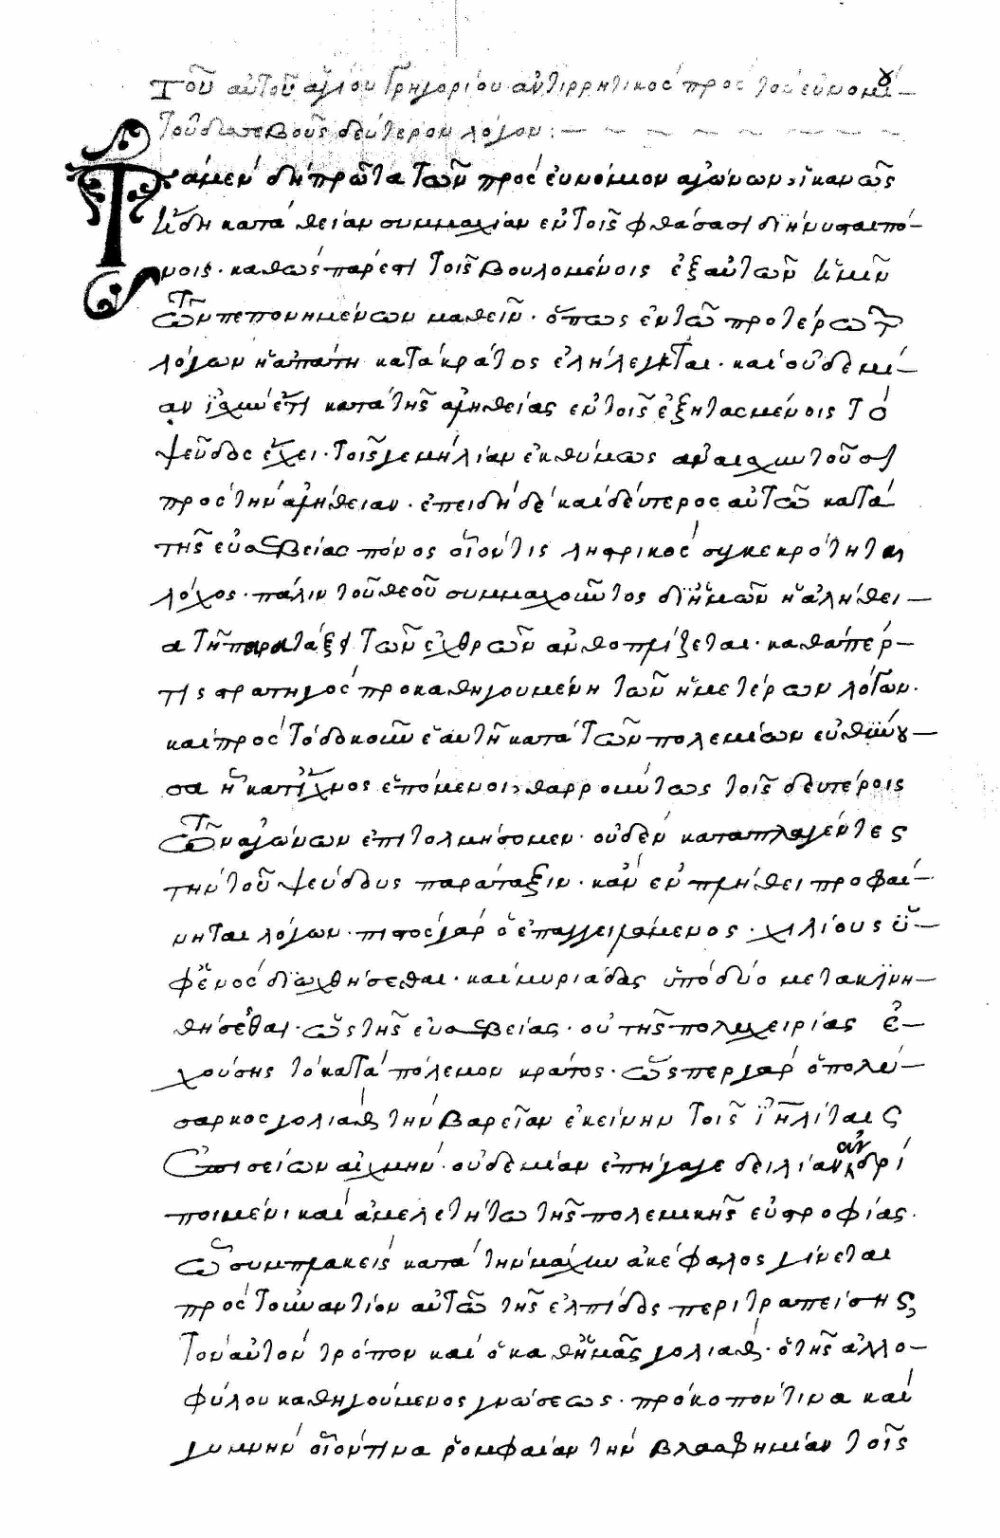 Τοῦ αὐτοῦ ἁγίου Γρηγορίου ἀντιρρητικὸς πρὸς τὸν εὐνομίου
τοῦ δυσσεβοῦς δεύτερον λόγον :—
Τὰ μὲν δὴ πρῶτα τῶν πρὸς εὐνόμιον ἀγώνων, ἱκανῶς
ἤδη κατὰ θείαν συμμαχίαν ἐν τοῖς φθάσασι διήνυσται πό-
νοις· καθὼς πάρεστι τοῖς βουλομένοις ἐξ αὐτῶν ἡμῖν
τῶν πεπονημένων μαθεῖν· ὅπως ἐν τῷ προτέρῳ τῶν
λόγων ἡ ἀπάτη κατὰ κράτος ἐλήλεγκται· καὶ οὐδεμί-
αν ἰσχὺν ἔτι κατὰ τῆς ἀληθείας ἐν τοῖς ἐξητασμένοις τὸ
ψεῦδος ἔχει· τοῖς γε μὴ λίαν ἐκθύμως ἀναισχυντοῦσι
πρὸς τὴν ἀλήθειαν· ἐπειδὴ δὲ καὶ δεύτερος αὐτῷ κατὰ
τῆς εὐσεβείας πόνος οἷόν τις λῃστρικὸς συγκεκρότηται
λόχος· πάλιν τοῦ θεοῦ συμμαχοῦντος δι' ἡμῶν ἡ ἀλήθει-
α τῇ παρατάξει τῶν ἐχθρῶν ἀνθοπλίζεται· καθάπερ
τις στρατηγὸς προκαθηγουμένη τῶν ἡμετέρων λόγων·
καὶ πρὸς τὸ δοκοῦν ἑαυτῇ κατὰ τῶν πολεμίων εὐθύνου-
σα ἧς κατ' ἴχνος ἑπόμενοι, θαρρούντως τοῖς δευτέροις
τῶν ἀγώνων ἐπιτολμήσομεν· οὐδὲν καταπλαγέντες
τὴν τοῦ ψεύδους παράταξιν· κἂν ἐν πλήθει προφαί-
νηται λόγων· πιστὸς γὰρ ὁ ἐπαγγειλάμενος· χιλίους ὑ-
φ' ἑνὸς διωχθήσεσθαι· καὶ μυριάδας ὑπὸ δύο μετακινη-
θήσεσθαι· ὡς τῆς εὐσεβείας· οὐ τῆς πολυχειρίας ἐ-
χούσης τὸ κατὰ πόλεμον κράτος· ὥσπερ γὰρ ὁ πολύ-
σαρκος γολιὰθ τὴν βαρεῖαν ἐκείνην τοῖς ἰηλίταις
ἐπισείων αἰχμήν· οὐδεμίαν ἐπήγαγε δειλίαν ἀνδρὶ
ποιμένι καὶ ἀμελετήτῳ τῆς πολεμικῆς εὐστροφίας·
ᾧ συμπλακεὶς κατὰ τὴν μάχην ἀκέφαλος γίνεται
πρὸς τοὐναντίον αὐτῷ τῆς ἐλπίδος περιτραπείσης,
τὸν αὐτὸν τρόπον καὶ ὁ καθ' ἡμᾶς γολιάθ· ὁ τῆς ἀλλο-
φύλου καθηγούμενος γνώσεως· πρόκοπόν τινα καὶ
γυμνὴν οἷόν τινα ῥομφαίαν τὴν βλασφημίαν τοῖς